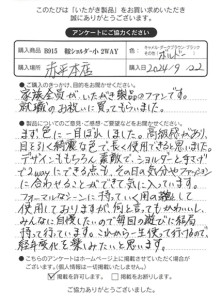 このたびは「いたがき製品」をお買い求めいただき
誠にありがとうございます。
アンケートにご協力ください
購入商品 B015 鞍ショルダー小 2WAY
キャメル・ダークブラウン・ブラック
その他 ボルドー
購入場所 赤平本店
ご購入日 2024/9/22
●ご購入のきっかけ、目的をお聞かせください。
家族全員が、いたがき製品のファンです。
就職のお祝いに買ってもらいました。
●製品についてのご意見・ご感想・ご要望などをお聞かせください。
まず色に一目ぼれしました。高級感があり、
目を引く綺麗な色で、長く使用できると思いました。
デザインももちろん素敵で、ショルダーと手さげ
で2wayにできる点も、その日の気分やファッション
に合わせることができて気に入っています。
フォーマルなシーンに持っていく用の鞄として
使用しておりますが、何と言ってもかわいいし、
みんなに自慢したいので毎回の遊びに結局
持って行っています。これから一生使って行けるので、
経年変化を楽しみたいと思います。
●こちらのアンケートはホームページ上に掲載させていただく場合が
ございます。(個人情報は一切掲載いたしません)
掲載を許可します。 掲載をお断りします。
ご協力ありがとうございました